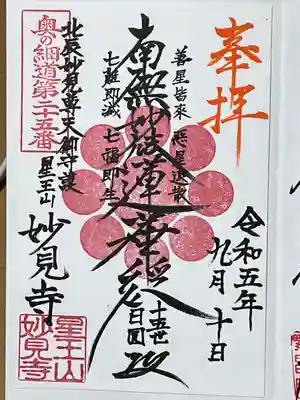 奉拝
令和五年
九月十日
善星皆来 悪星退散
南無妙法蓮華経
七難即滅 七福即生
十五世
日圓
北辰妙見尊天御守護
星王山
妙見寺
奥の細道第二十五番
星王山
妙見寺